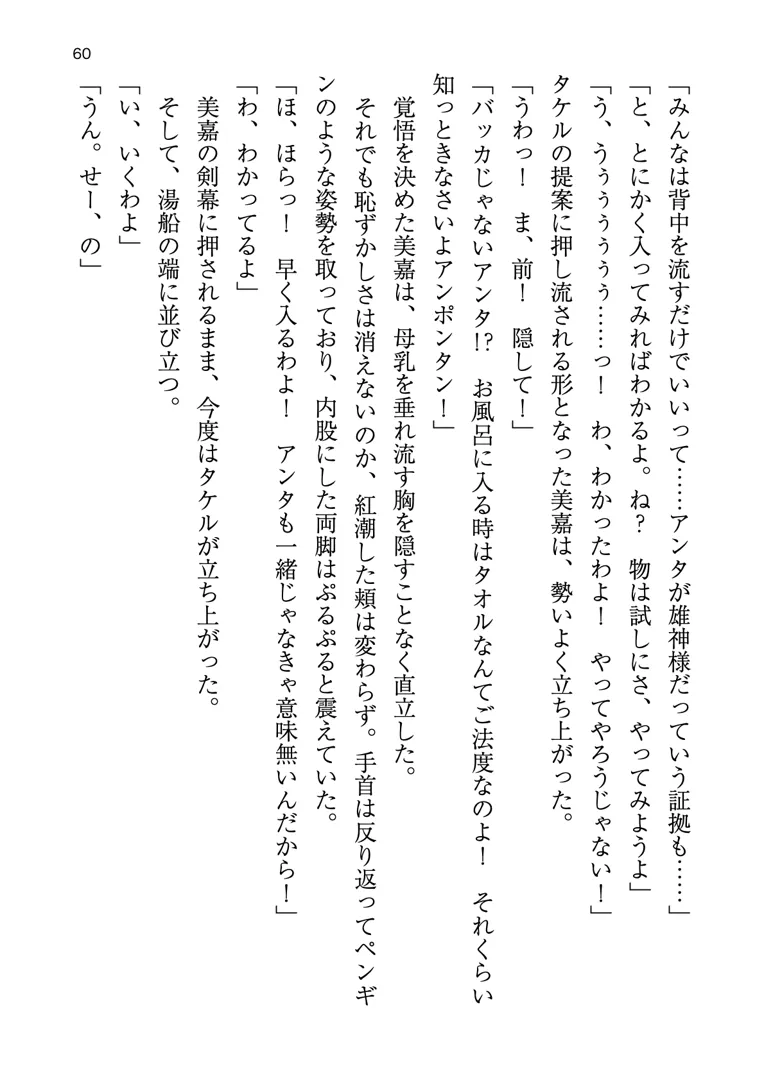 60
「みんなは背中を流すだけでいいって……アンタが雄神様だっていう証拠も……」
「と、とにかく入ってみればわかるよ。ね？　物は試しにさ、やってみようよ」
「う、うぅぅぅぅぅ……っ！　わ、わかったわよ！　やってやろうじゃない！」
タケルの提案に押し流される形となった美嘉は、勢いよく立ち上がった。
「うわっ！　ま、前！　隠して！」
「バッカじゃないアンタ!?　お風呂に入る時はタオルなんてご法度なのよ！　それくらい
知っときなさいよアンポンタン！」
覚悟を決めた美嘉は、母乳を垂れ流す胸を隠すことなく直立した。
それでも恥ずかしさは消えないのか、紅潮した頬は変わらず。手首は反り返ってペンギ
ンのような姿勢を取っており、内股にした両脚はぷるぷると震えていた。
「ほ、ほらっ！　早く入るわよ！　アンタも一緒じゃなきゃ意味無いんだから！」
「わ、わかってるよ」
美嘉の剣幕に押されるまま、今度はタケルが立ち上がった。
そして、湯船の端に並び立つ。
「い、いくわよ」
「うん。せー、の」